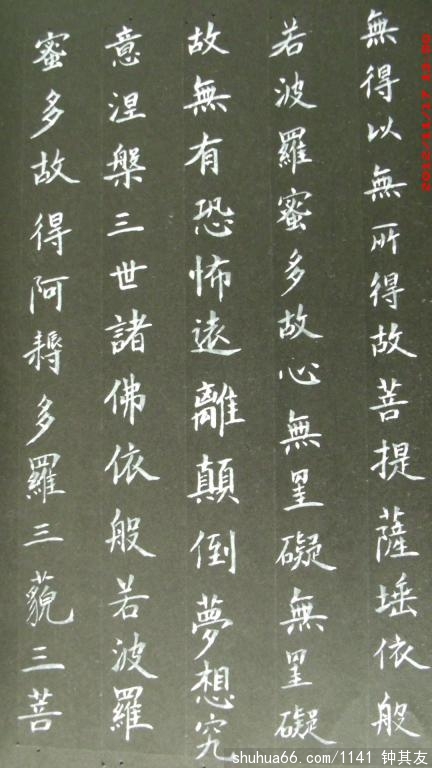 無得以無所得故菩提薩埵依般
若波羅蜜多故心無罣礙無罣礙
故無有恐怖遠離顛倒夢想究
意涅槃三世諸佛依般若波羅
蜜多故得阿耨多羅三藐三菩
shuhua66.com/1141 钟其友